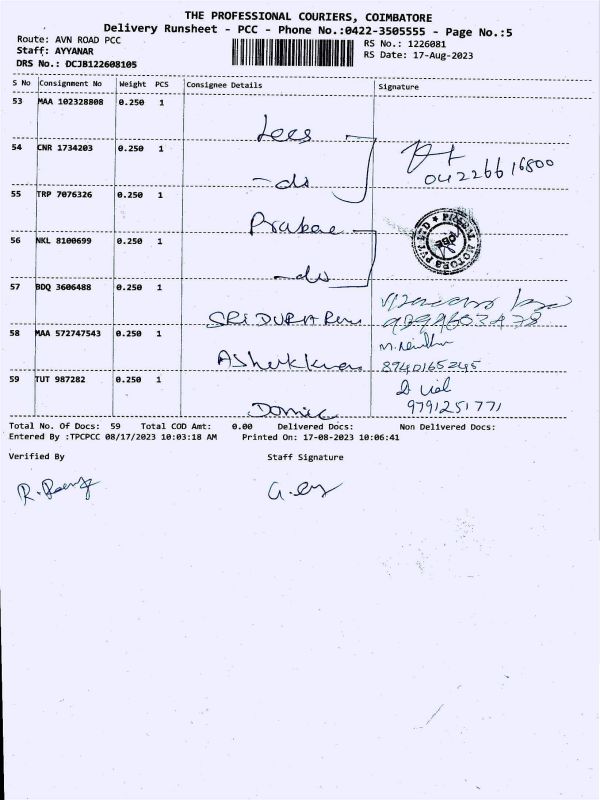 THE PROFESSIONAL COURIERS, COIMBATORE
Delivery Runsheet - PCC - Phone No.:0422-3505555 - Page No.:5
Route: AVN ROAD PCC
RS No.: 1226081
Staff: AYYANAR
RS Date: 17-Aug-2023
DRS No.: DCJB122608105
S No Consignment No Weight PCS Consignee Details Signature
53 MAA 102328808 0.250 1
Lees
54 CNR 1734203 0.250 1
04226616800
-do
55 TRP 7076326 0.250 1
Prabae
56 NKL 8100699 0.250 1
-do
57 BDQ 3606488 0.250 1
SRI DURGA
58 MAA 572747543 0.250 1
8940165245
59 TUT 987282 0.250 1
9791251771
Total No. Of Docs: 59 Total COD Amt: 0.00 Delivered Docs: Non Delivered Docs:
Entered By :TPCPCC 08/17/2023 10:03:18 AM Printed On: 17-08-2023 10:06:41
Verified By Staff Signature